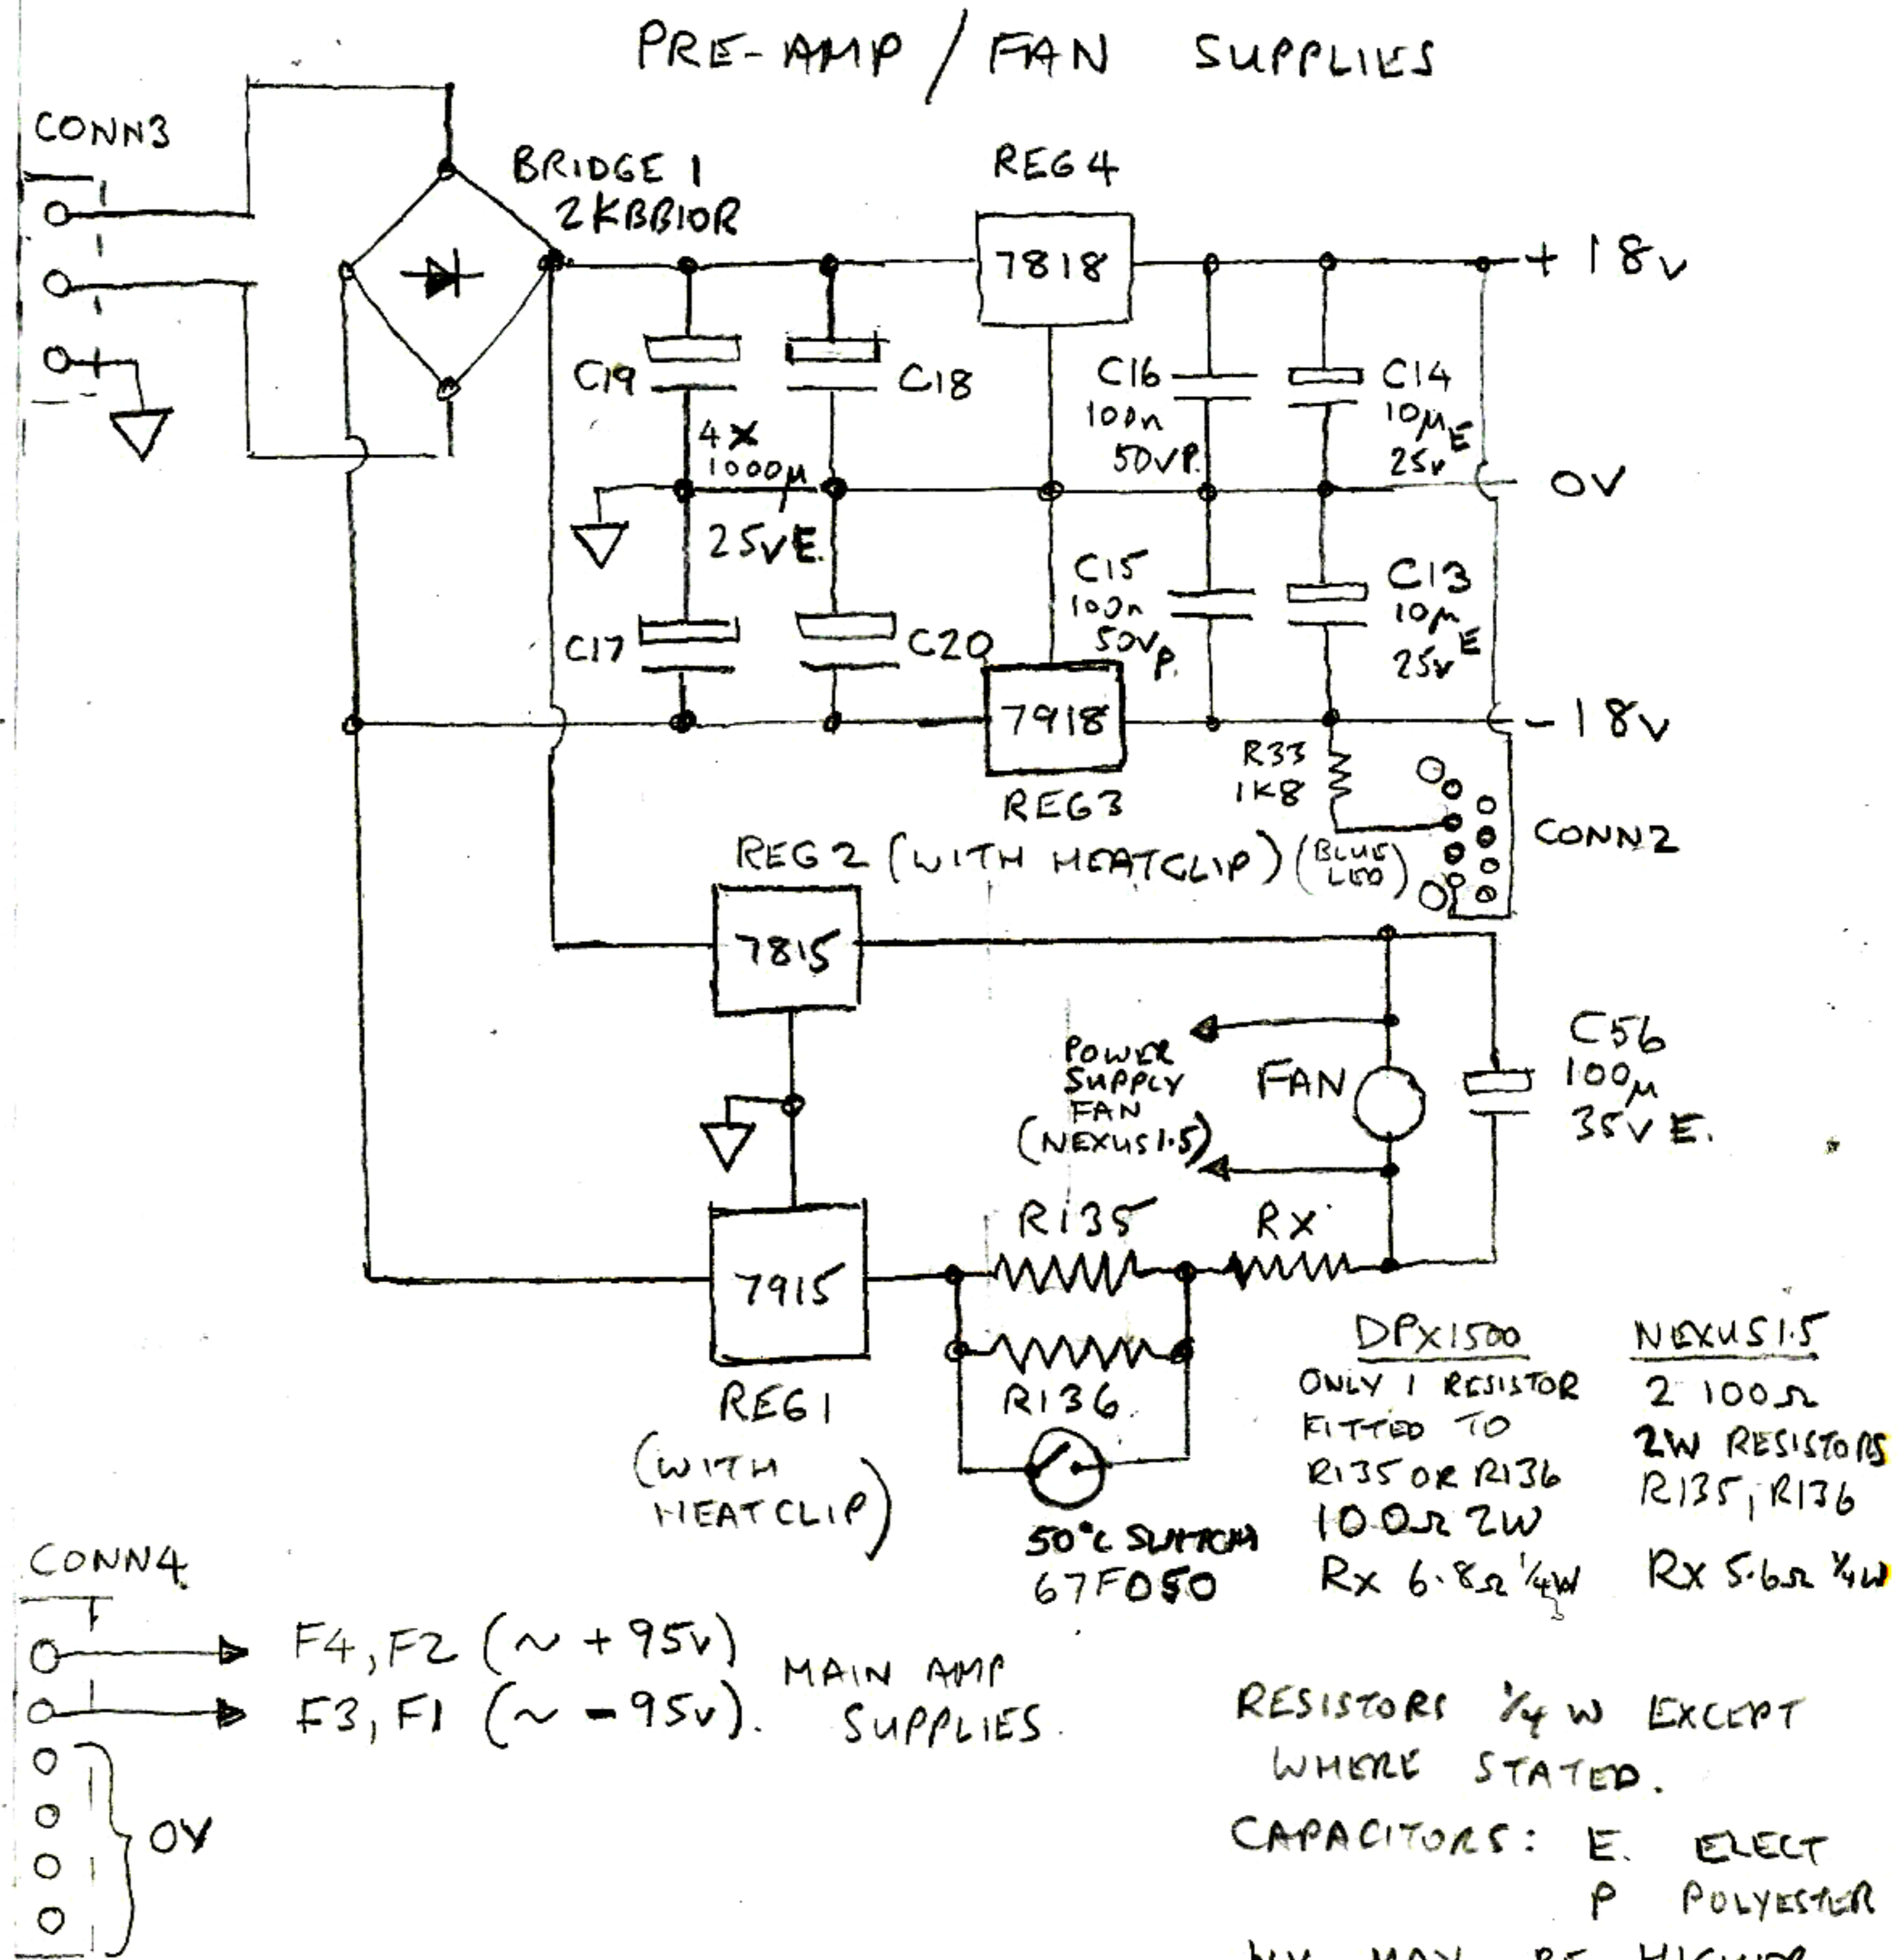 PRE-AMP / FAN SUPPLIES
CONN3
BRIDGE 1
2KBB10R
REG 4
7818
+ 18v
C19
C18
C16
100n
50V P.
C14
10µ E
25v
4 X
1000µ
25V E.
0V
C17
C20
C15
100n
50V P.
C13
10µ E
25v
7918
- 18v
REG3
R33
1K8
CONN2
REG 2 (WITH HEATCLIP)
(BLUE LED)
7815
POWER
SUPPLY
FAN
(NEXUS1.5)
FAN
C56
100µ
35V E.
R135
RX
7915
REG1
(WITH
HEATCLIP)
R136
50°C SWITCH
67F050
DPX1500
ONLY 1 RESISTOR
FITTED TO
R135 OR R136
100Ω 2W
Rx 6.8Ω ¼W
NEXUS1.5
2 100Ω
2W RESISTORS
R135, R136
Rx 5.6Ω ¼W
CONN4
F4, F2 (~ + 95v)
F3, F1 (~ - 95v).
MAIN AMP
SUPPLIES.
0V
RESISTORS ¼ W EXCEPT
WHERE STATED.
CAPACITORS: E. ELECT
P POLYESTER
MAY BE HIGHER